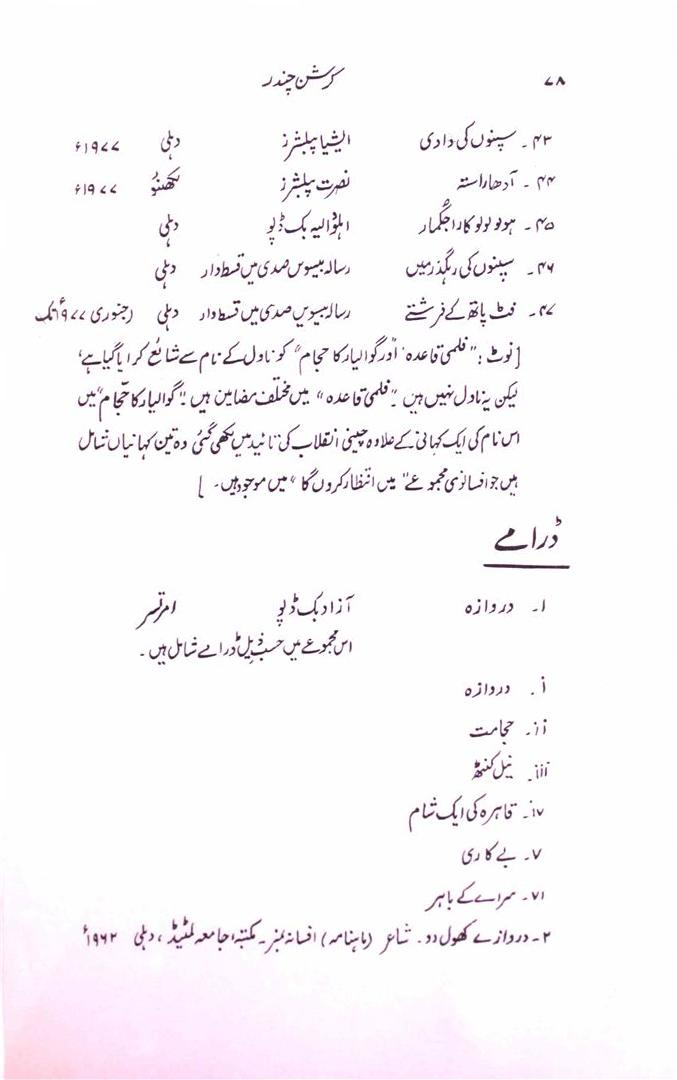 ۷۸ کرشن چندر
۴۳۔ سپنوں کی دادی ایشیا پبلشرز دہلی ۱۹۷۷ء
۴۴۔ آدھا راستہ نصرت پبلشرز لکھنؤ ۱۹۷۷ء
۴۵۔ ہونولولو کا راجکمار اہلوالیہ بک ڈپو دہلی
۴۶۔ سپنوں کی رہگذر میں رسالہ بیسویں صدی میں قسط وار دہلی
۴۷۔ فٹ پاتھ کے فرشتے رسالہ بیسویں صدی میں قسط وار دہلی (جنوری ۱۹۷۷ء تک
[نوٹ: "فلمی قاعدہ" اور گوالیار کا حجام" کو ناول کے نام سے شائع کرایا گیا ہے،
لیکن یہ ناول نہیں ہیں۔ "فلمی قاعدہ" میں مختلف مضامین ہیں۔ "گوالیار کا حجام" میں
اس نام کی ایک کہانی کے علاوہ چینی انقلاب کی تائید میں لکھی گئی وہ تین کہانیاں شامل
ہیں جو افسانوی مجموعے" میں انتظار کروں گا" میں موجود ہیں۔ ]
ڈرامے
۱۔ دروازہ آزاد بک ڈپو امرتسر
اس مجموعے میں حسب ذیل ڈرامے شامل ہیں۔
i. دروازہ
ii. حجامت
iii. نیل کنٹھ
iv. قاہرہ کی ایک شام
v. بے کاری
vi. سرائے کے باہر
۲۔ دروازے کھول دو۔ شاعر (ماہنامہ) افسانہ نمبر۔ مکتبہ جامعہ لمٹیڈ، دہلی ۱۹۶۲ء